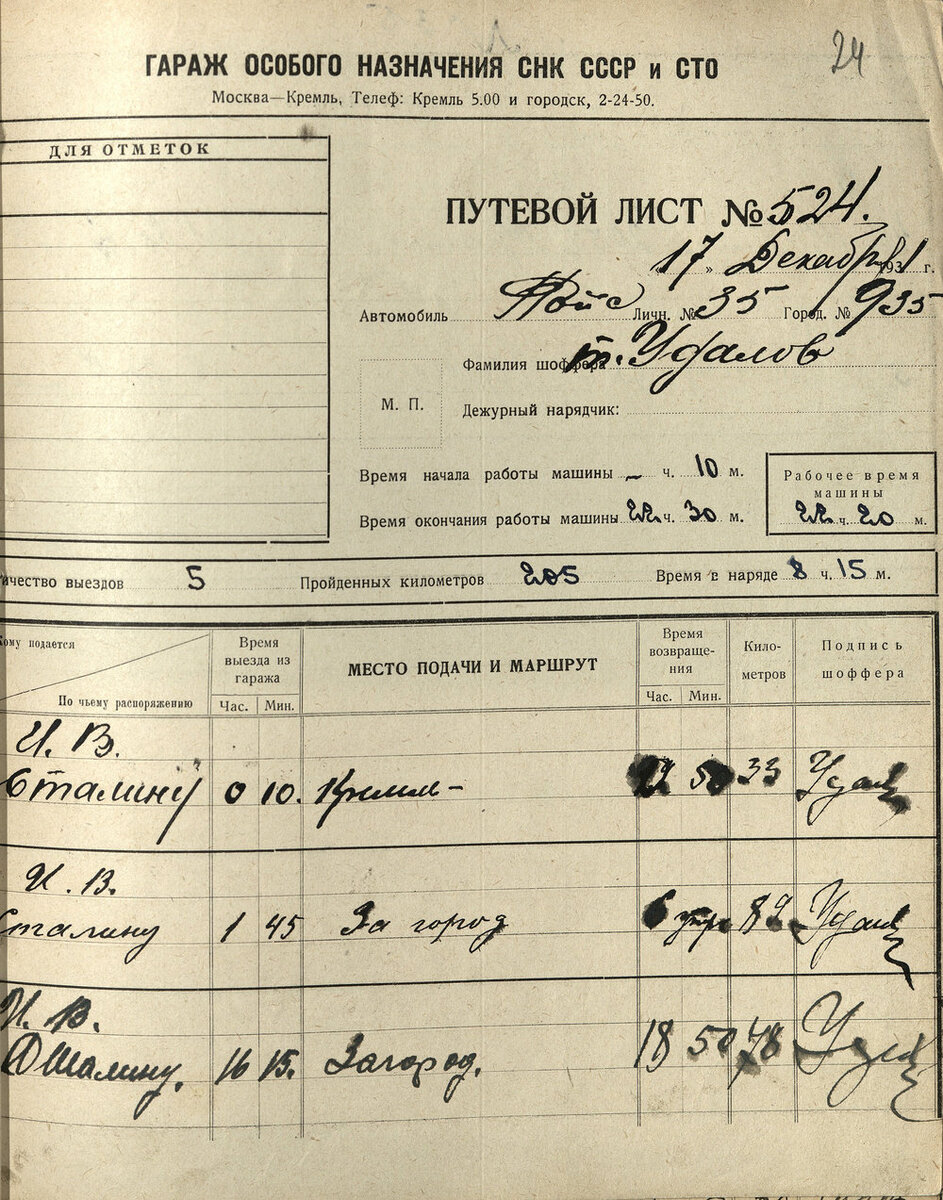 24
ГАРАЖ ОСОБОГО НАЗНАЧЕНИЯ СНК СССР и СТО
Москва—Кремль, Телеф: Кремль 5.00 и городск, 2-24-50.
ДЛЯ ОТМЕТОК
ПУТЕВОЙ ЛИСТ № 524.
„17” Декабря 1931 г.
Автомобиль Ройс Личн. № 35 Город. № 935
Фамилия шоффера т. Удалов
М. П.
Дежурный нарядчик:
Время начала работы машины – ч. 10 м.
Время окончания работы машины 22 ч. 30 м.
Рабочее время
машины
22 ч. 20 м.
ичество выездов 5 Пройденных километров 205 Время в наряде 8 ч. 15 м.
ому подается
По чьему распоряжению
Время
выезда из
гаража
Час. Мин.
МЕСТО ПОДАЧИ И МАРШРУТ
Время
возвраще-
ния
Час. Мин.
Кило-
метров
Подпись
шоффера
И. В.
Сталину 0 10. Кремль – 50 33
И. В.
Сталину 1 45 За город 6 утр 82
И. В.
Сталину. 16 15. Загород. 18 50 78